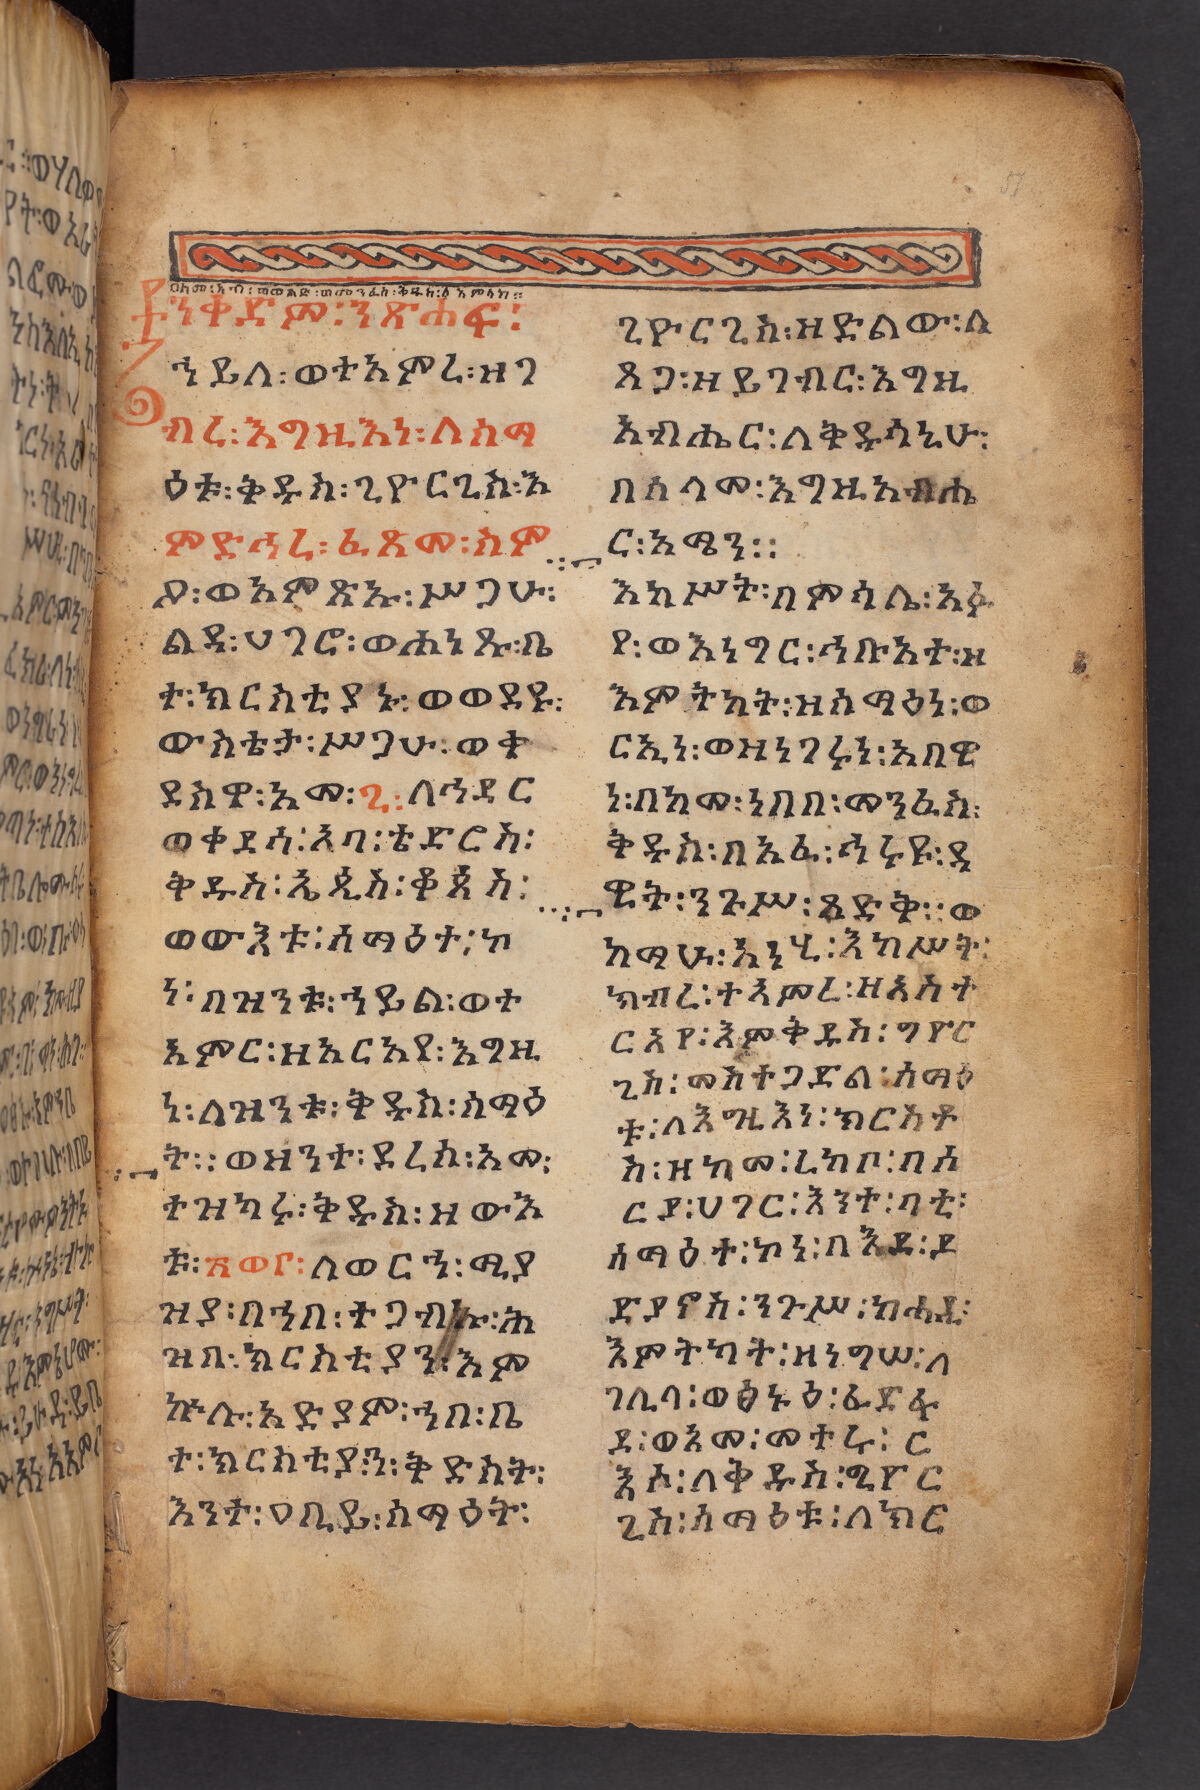 በስመ፡አብ፡ወወልድ፡ወመንፈስ፡ቅዱስ፡፩አምላክ።
ንቀድም፡ንጽሐፍ፡
ኀይለ፡ወተአምረ፡ዘገ
ብረ፡እግዚእነ፡ለሰማ
ዕቱ፡ቅዱስ፡ጊዮርጊስ፡እ
ምድኅረ፡ፈጸመ፡ስም
ዖ፡ወአምጽኡ፡ሥጋሁ፡
ልዳ፡ሀገሮ፡ወሐነጹ፡ቤ
ተ፡ክርስቲያኑ፡ወወደዩ፡
ውስቴታ፡ሥጋሁ፡ወቀ
ደስዋ፡አመ፡፯፡ለኅዳር
ወቀደሳ፡አባ፡ቴድሮስ፡
ቅዱስ፡ኤጲስ፡ቆጶስ፡
ወውእቱ፡ሰማዕተ፡ኮ
ነ፡በዝንቱ፡ኀይል፡ወተ
አምር፡ዘአርአየ፡እግዚ
ነ፡ለዝንቱ፡ቅዱስ፡ሰማዕ
ት፡፡ወዘንተ፡ደረሰ፡አመ፡
ተዝካሩ፡ቅዱስ፡ዘውእ
ቱ፡አመ፳ወ፫፡ለወርኀ፡ሚያ
ዝያ፡በኀበ፡ተጋብኡ፡ሕ
ዝበ፡ክርስቲያን፡እም
ኵሉ፡አድያም፡ኀበ፡ቤ
ተ፡ክርስቲያን፡ቅድስት፡
እንተ፡ዐቢይ፡ሰማዕት፡
ጊዮርጊስ፡ዘድልው፡ለ
ጸጋ፡ዘይገብር፡እግዚ
አብሔር፡ለቅዱሳኒሁ፡
በሰላመ፡እግዚአብሔ
ር፡አሜን፡፡
እከሥት፡በምሳሌ፡አፉ
የ፡ወእነግር፡ኅቡአተ፡ዘ
እምትካት፡ዘሰማዕነ፡ወ
ርኢነ፡ወዘነገሩነ፡አበዊ
ነ፡በከመ፡ነበበ፡መንፈስ፡
ቅዱስ፡በአፈ፡ኅሩይ፡ዳ
ዊት፡ንጉሥ፡ጻድቅ፡፡ወ
ከማሁ፡አነሂ፡እከሥት፡
ክብረ፡ተአምረ፡ዘአስተ
ርአየ፡እምቅዱስ፡ግዮር
ጊስ፡መስተጋድል፡ሰማዕ
ቱ፡ለእግዚእነ፡ክርስቶ
ስ፡ዘከመ፡ረከቦ፡በሰ
ርያ፡ሀገር፡እንተ፡ባቲ፡
ሰማዕተ፡ኮነ፡በእደ፡ዱ
ድያኖስ፡ንጉሥ፡ከሐዲ፡
እምትካት፡ዘነግሠ፡ለ
ገሊላ፡ወፅኑዕ፡ፈድፋ
ደ፡ወአመ፡መተሩ፡ር
እሶ፡ለቅዱስ፡ጊዮር
ጊስ፡ሰማዕቱ፡ለክር